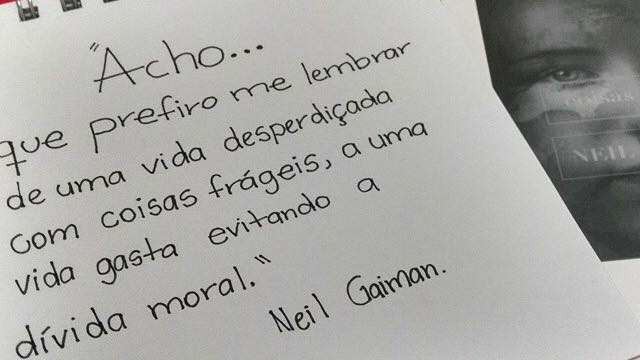 "Acho...
que prefiro me lembrar
de uma vida desperdiçada
com coisas frágeis, a uma
vida gasta evitando a
dívida moral."
Neil Gaiman.
NEIL